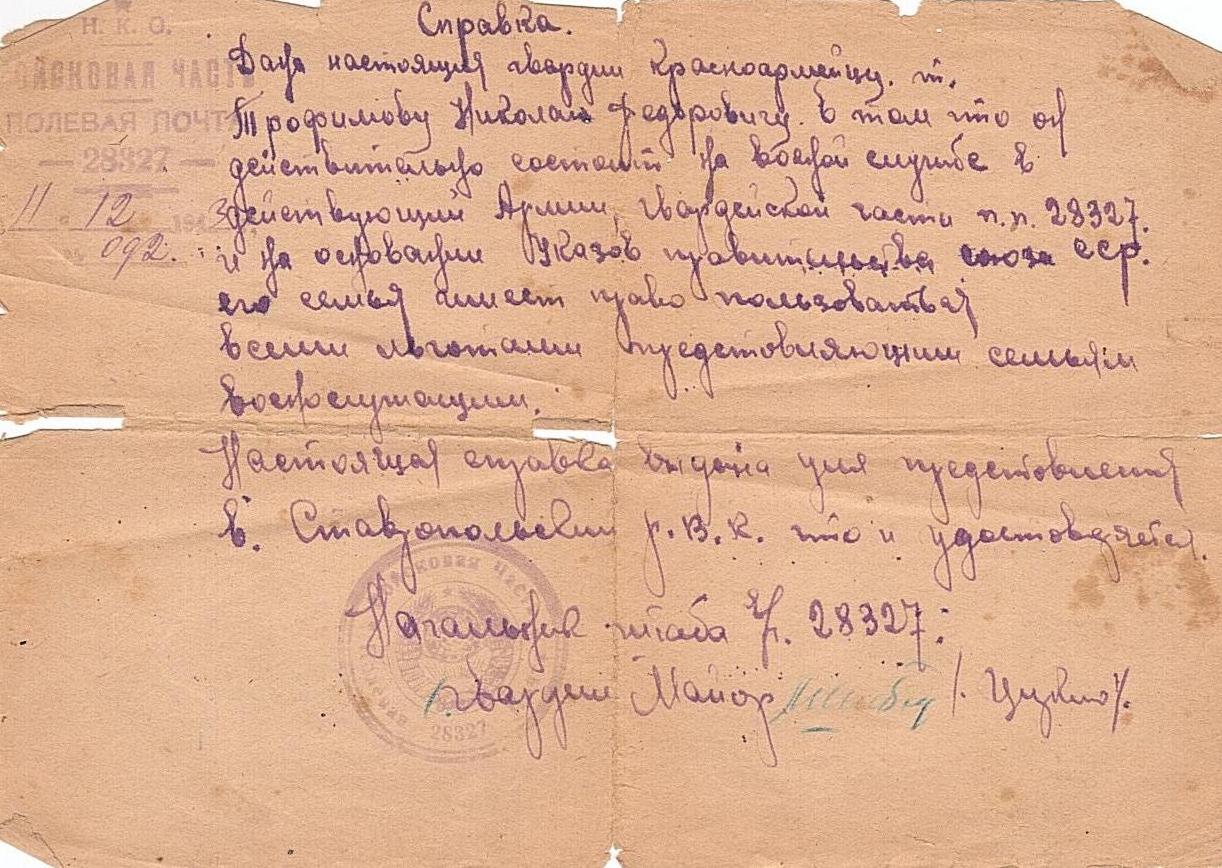 Н. К. О.
ВОЙСКОВАЯ ЧАСТЬ
ПОЛЕВАЯ ПОЧТА
— 28327 —
11 12 1943
№ 092.
Справка.
Дана настоящия гвардии Красноармейцу. т.
Трофимову Николаю Федоровичу. в том что он
действительно состоит на военой службе в
действующий Армии, гвардейской части п.п. 28327.
и на основании Указов правительства союза ССР.
его семья имеет право пользоваться
всеми льготами предстовляющим семьям
военослужащим.
Настоящая справка выдана для предстовления
в. Ставропольский р.В.К. что и удостовдяется.
Начальник штаба ч/п. 28327:
гвардии Майор / /.
войсковая часть
28327